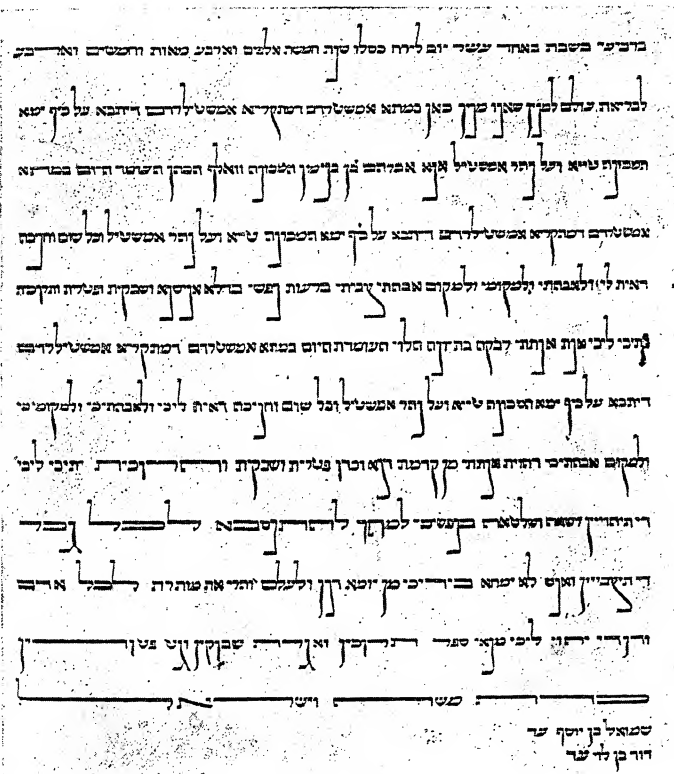 ברביעי בשבת באחד עשר יום לירח כסלו שנת חמשת אלפים וארבע מאות וחמשים וארבע
לבריאת עולם למנין שאנו מנין כאן במתא אמשטלדם דמתקריא אמשטילרדם דיתבא על כיף ימא
המכונה טייא ועל נהר אמשטיל אנא אברהם בן בנימין המכונה וואלף הכהן העומד היום במתא
אמשטלדם דמתקריא אמשטילרדם דיתבא על כיף ימא המכונה טייא ועל נהר אמשטיל וכל שום וחניכה
דאית לי ולאבהתי ולמקומי ולמקום אבהתי צביתי ברעות נפשי בדלא אניסנא ושבקית ופטרית ותרוכית
יתיכי ליכי אנת אנתתי רבקה בת יונה הלוי העומדת היום במתא אמשטלדם דמתקריא אמשטילרדם
דיתבא על כיף ימא המכונה טייא ועל נהר אמשטיל וכל שום וחניכה דאית ליכי ולאבהתיכי ולמקומיכי
ולמקום אבהתיכי דהוית אנתתי מן קדמת דנא וכדו פטרית ושבקית ותרוכית יתיכי ליכי
דיתיהוייין רשאה ושלטאה בנפשיכי למהך להתנסבא לכל גבר
די תיצבייין ואנש לא ימחא בידיכי מן יומא דנן ולעלם והרי את מותרת לכל אדם
ודן די יהוי ליכי מנאי ספר תרוכין ואגרת שבוקין וגט פטורין
כדת משה וישראל
שמואל בן יוסף עד
בן עד